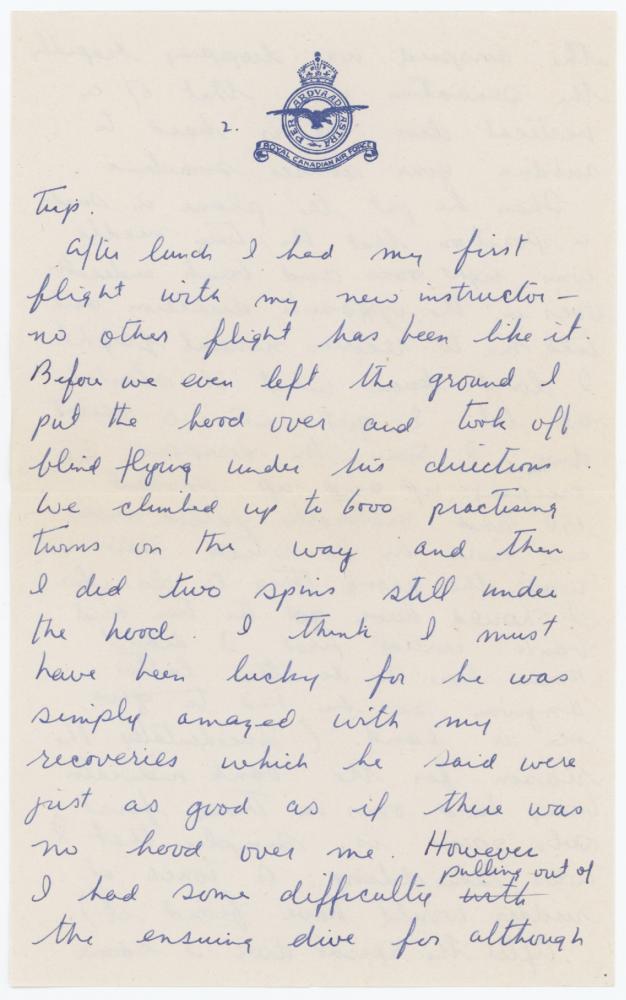 2.
PER ARDVA AD ASTRA
ROYAL CANADIAN AIR FORCE
Trip.
After lunch I had my first
flight with my new instructor –
no other flight has been like it.
Before we even left the ground I
put the hood over and took off
blind flying under his directions.
We climbed up to 6000 practising
turns on the way and then
I did two spins still under
the hood. I think I must
have been lucky for he was
simply amazed with my
recoveries which he said were
just as good as if there was
no hood over me. However
pulling out of
I had some difficulty with
the ensuing dive for although